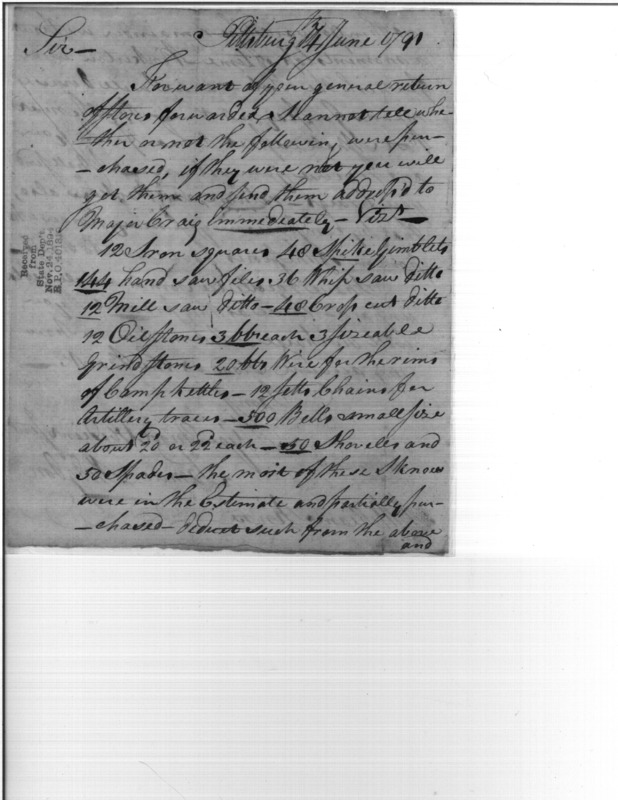 Sir — Pittsburg 14 June 1791
For want of your general return
of stores forwarded, I cannot tell whe-
ther or not the following were pur-
-chased, if they were not you will
get them and send them address'd to
Major Craig Immediately — Vizt
12 Iron squares 48 Spike Gimblets
144 hand saw files 36 Whip saw ditto
12 Mill saw ditto — 48 Cross cut ditto
12 Oil stones 3 lb each 3 sizeable
Grindstones 20 lbs Wire for the rims
of Camp Kettles — 12 setts Chains for
Artillery traces — 500 Bells small size
about 20 or 22 each — 50 Shovells and
50 Spades — the most of these I know
were in the Estimate and partially pur-
-chased — deduct such from the above
and
Received
from
State Dep't
Nov. 24, 1894
R.P.O.